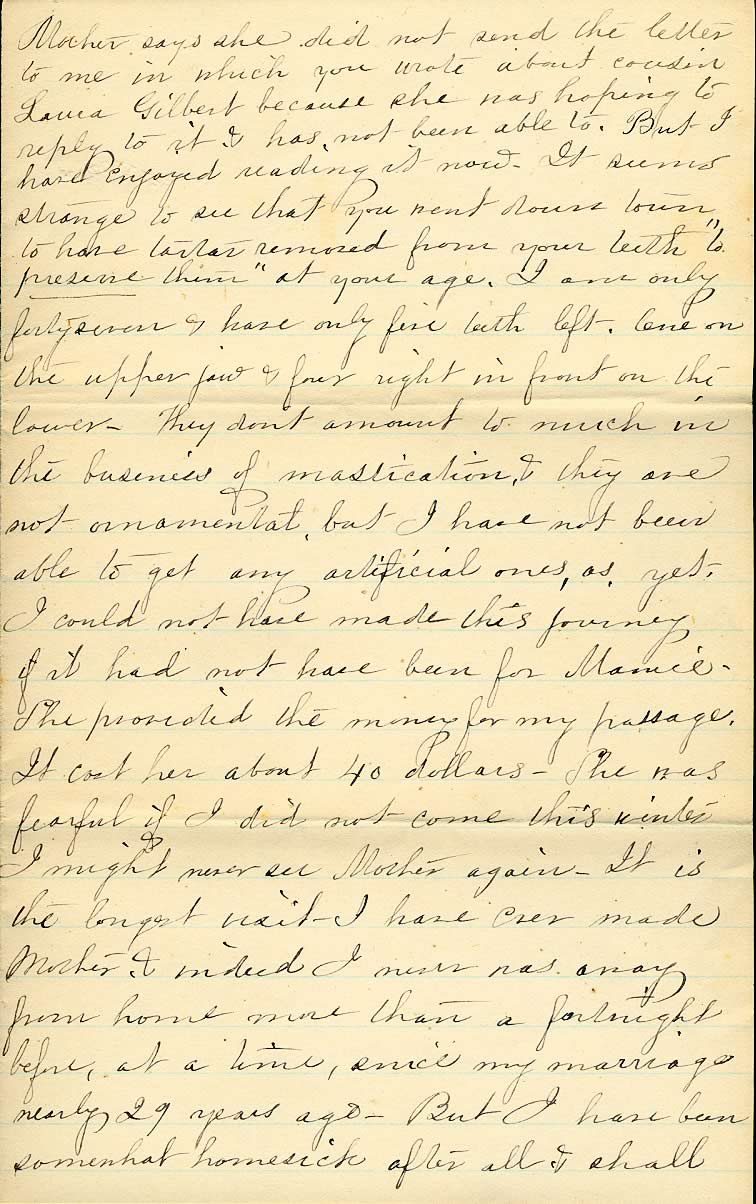 Mother says she did not send the letter
to me in which you wrote about cousin
Laura Gilbert because she was hoping to
reply to it & has not been able to. But I
have enjoyed reading it now. It seems
strange to see that you went down town
to have tartar removed from your teeth "to
preserve them" at your age. I am only
fortyseven & have only five teeth left. One on
the upper jaw & four right in front on the
lower - They don't amount to much in
the business of mastication, & they are
not ornamental, but I have not been
able to get any artificial ones, as, yet.
I could not have made this journey
if it had not have been for Mamie -
She provided the money for my passage.
It cost her about 40 dollars - She was
fearful if I did not come this winter
I might never see Mother again - It is
the longest visit - I have ever made
Mother & indeed I never was away
from home more than a fortnight
before, at a time, since my marriage
nearly 29 years ago - But I have been
somewhat homesick after all & shall